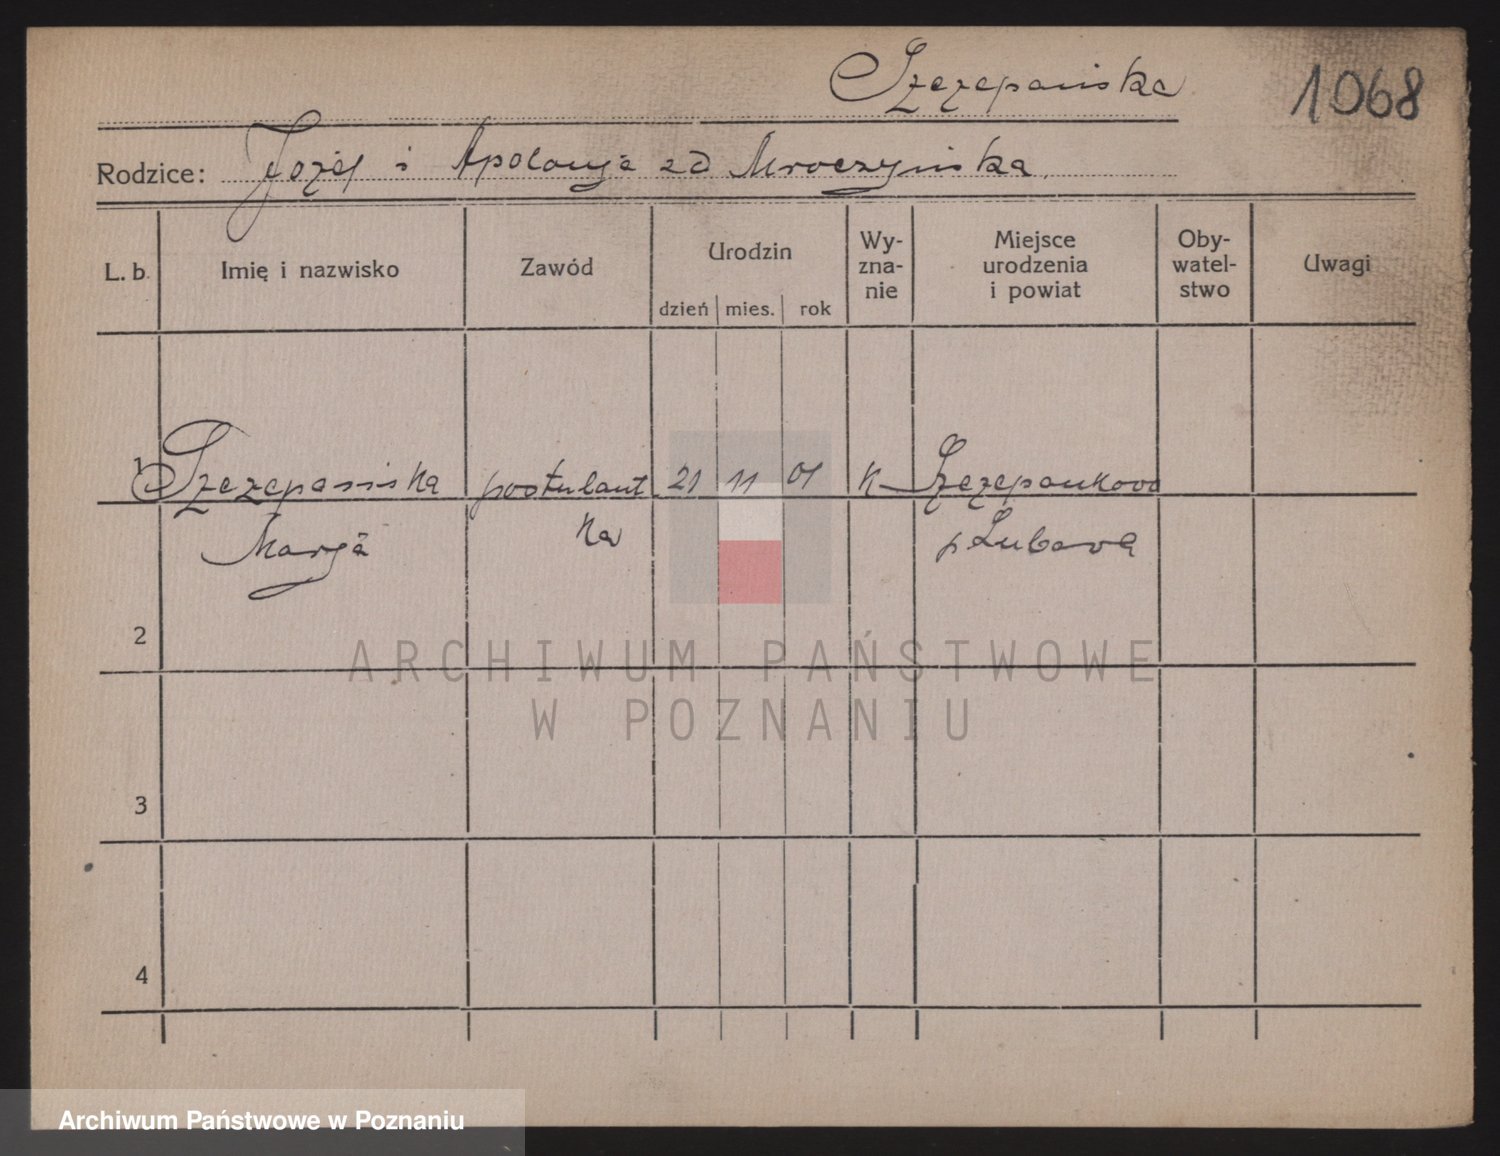 Szczepańska
1068
Rodzice: Józef i Apolonja zd Mroczyńska.
L. b. Imię i nazwisko Zawód Urodzin Wy- Miejsce Oby- Uwagi
zna- urodzenia watel-
nie i powiat stwo
dzień mies. rok
1 Szczepańska postulant 21 11 01 K Szczepankowo
Marja ka p Lubawa
2
ARCHIWUM PAŃSTWOWE
W POZNANIU
3
4
Archiwum Państwowe w Poznaniu